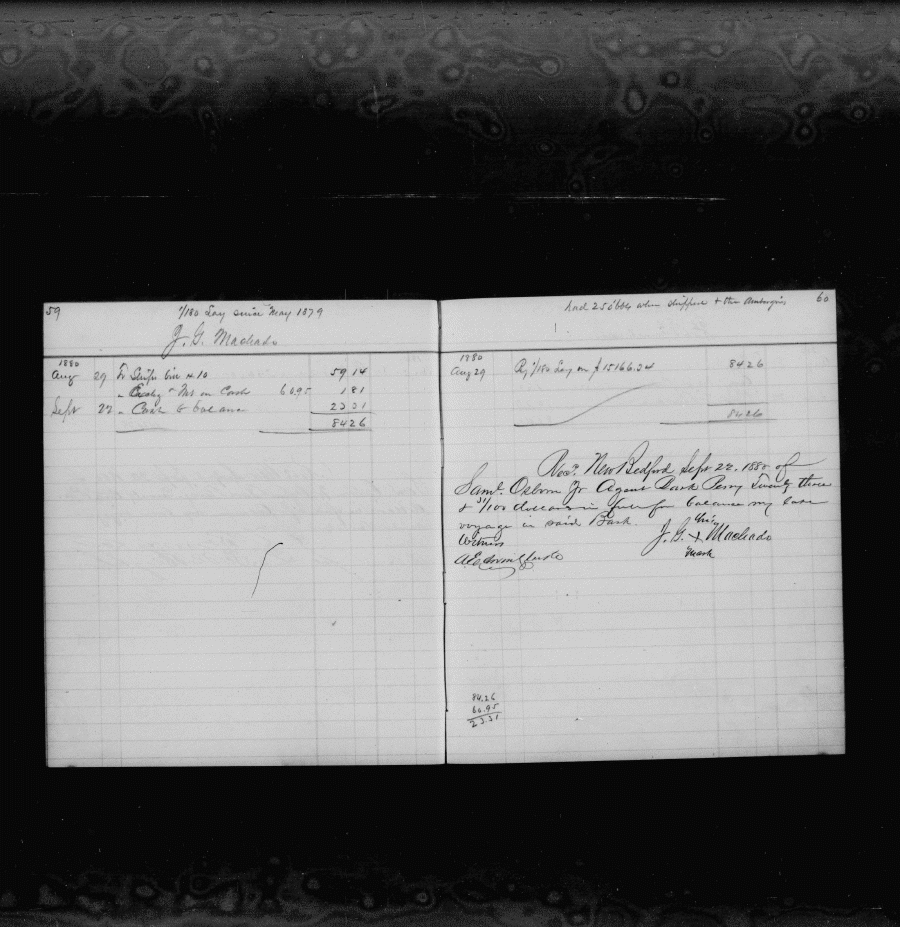 59
1/180 Lay since May 1879
J. G. Machado
1880
Aug 29 To Ships bill & 10 59 14
" & Int on Cash 60.95 1 81
Sept 22 " Cash to balance 23 31
84 26
60
had 250 bbls when shipped & the Ambergris
1880
Aug 29 By 1/180 Lay on $15166.24 84 26
84 26
Recd. New Bedford Sept 22. 1880 of
Saml. Osborn Jr Agent Bark Perry Twenty three
& 31/100 dollars in full for balance my last
voyage in said Bark.
Witness
J. G. his + mark Machado
84.26
60.95
23.31